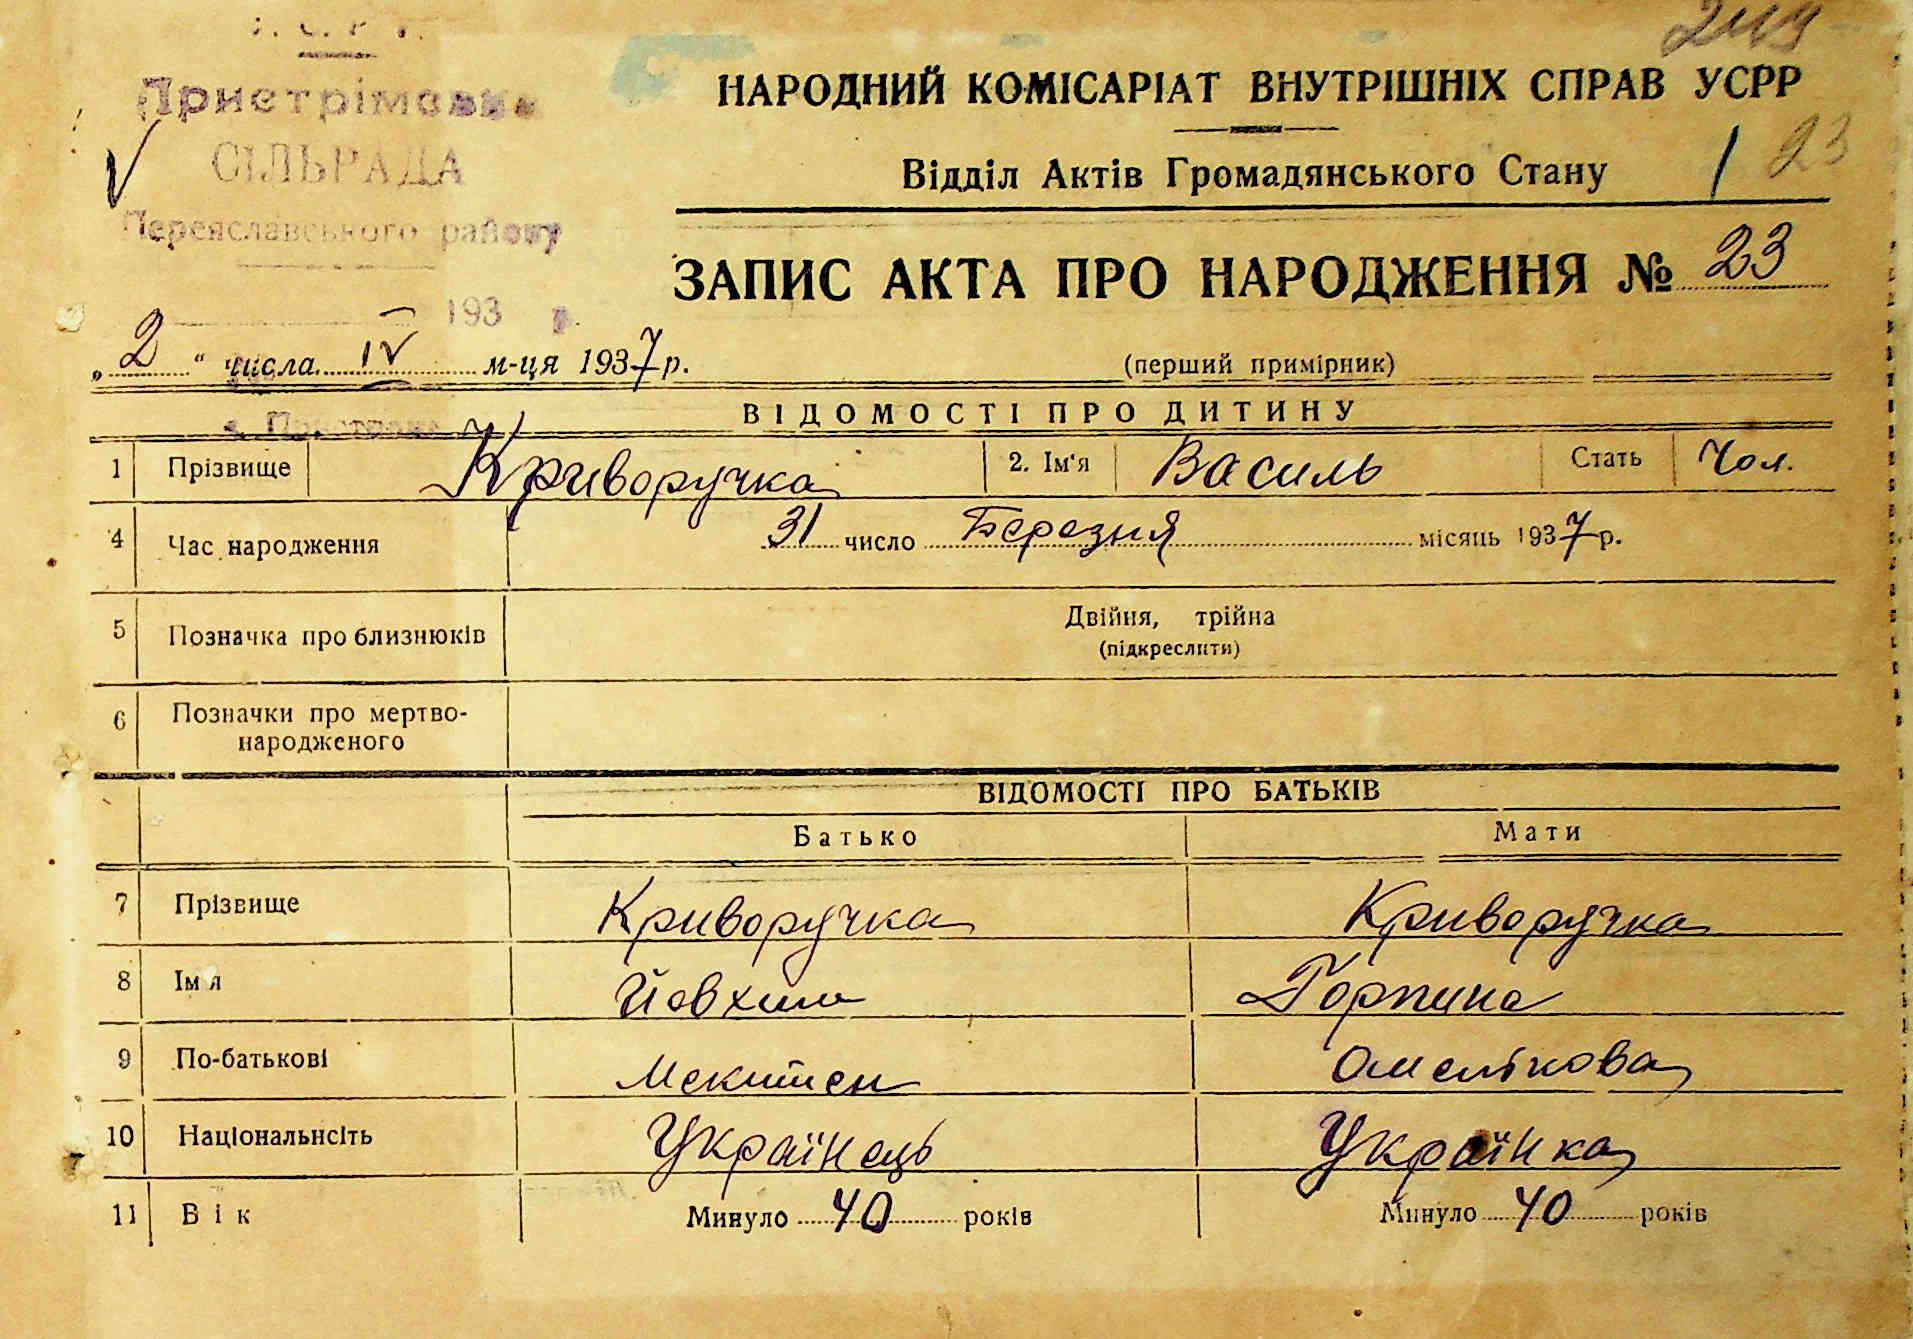 Пристрімська
СІЛЬРАДА
Переяславського району
193 р.
НАРОДНИЙ КОМІСАРІАТ ВНУТРІШНІХ СПРАВ УСРР
Відділ Актів Громадянського Стану
1 23
ЗАПИС АКТА ПРО НАРОДЖЕННЯ № 23
„2“ числа IV м-ця 1937 р. (перший примірник)
ВІДОМОСТІ ПРО ДИТИНУ
1 Прізвище Криворучка 2. Ім'я Василь Стать Чол.
4 Час народження 31 число Березня місяць 1937 р.
5 Позначка про близнюків Двійня, трійна
(підкреслити)
6 Позначки про мертво-
народженого
ВІДОМОСТІ ПРО БАТЬКІВ
Батько Мати
7 Прізвище Криворучка Криворучка
8 Ім'я Йовхим Горпина
9 По-батькові Мекитен Омелькова
10 Національнсіть Українець Українка
11 Вік Минуло 40 років Минуло 40 років